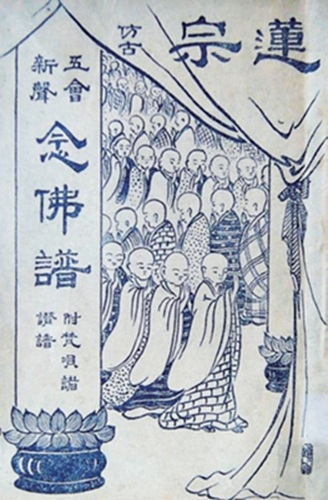 蓮宗
仿古
五會
新聲
念佛譜
附梵唄譜
讚譜